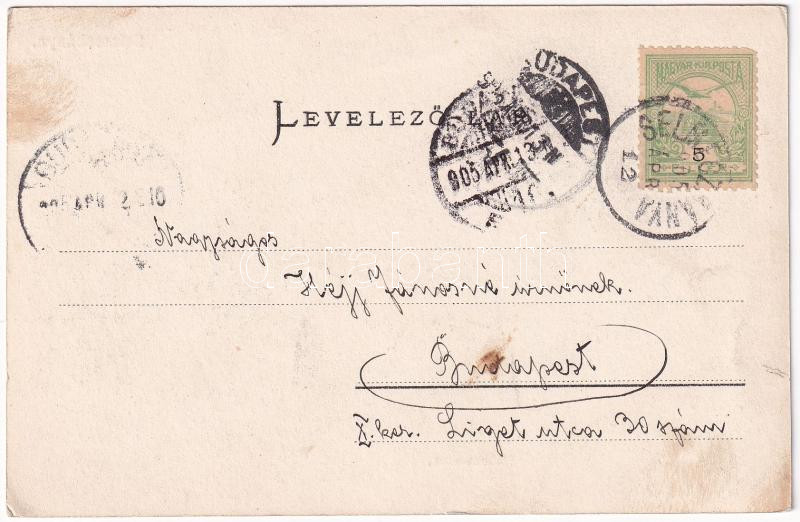 LEVELEZŐ-LAP
MAGYAR KIR. POSTA
5
BUDAPEST
905 APR. 13
905 APR
12
Nagyságos
Héjj Jánosné úrnőnek.
Budapest
X. ker. Liget utca 30 szám
darabanth